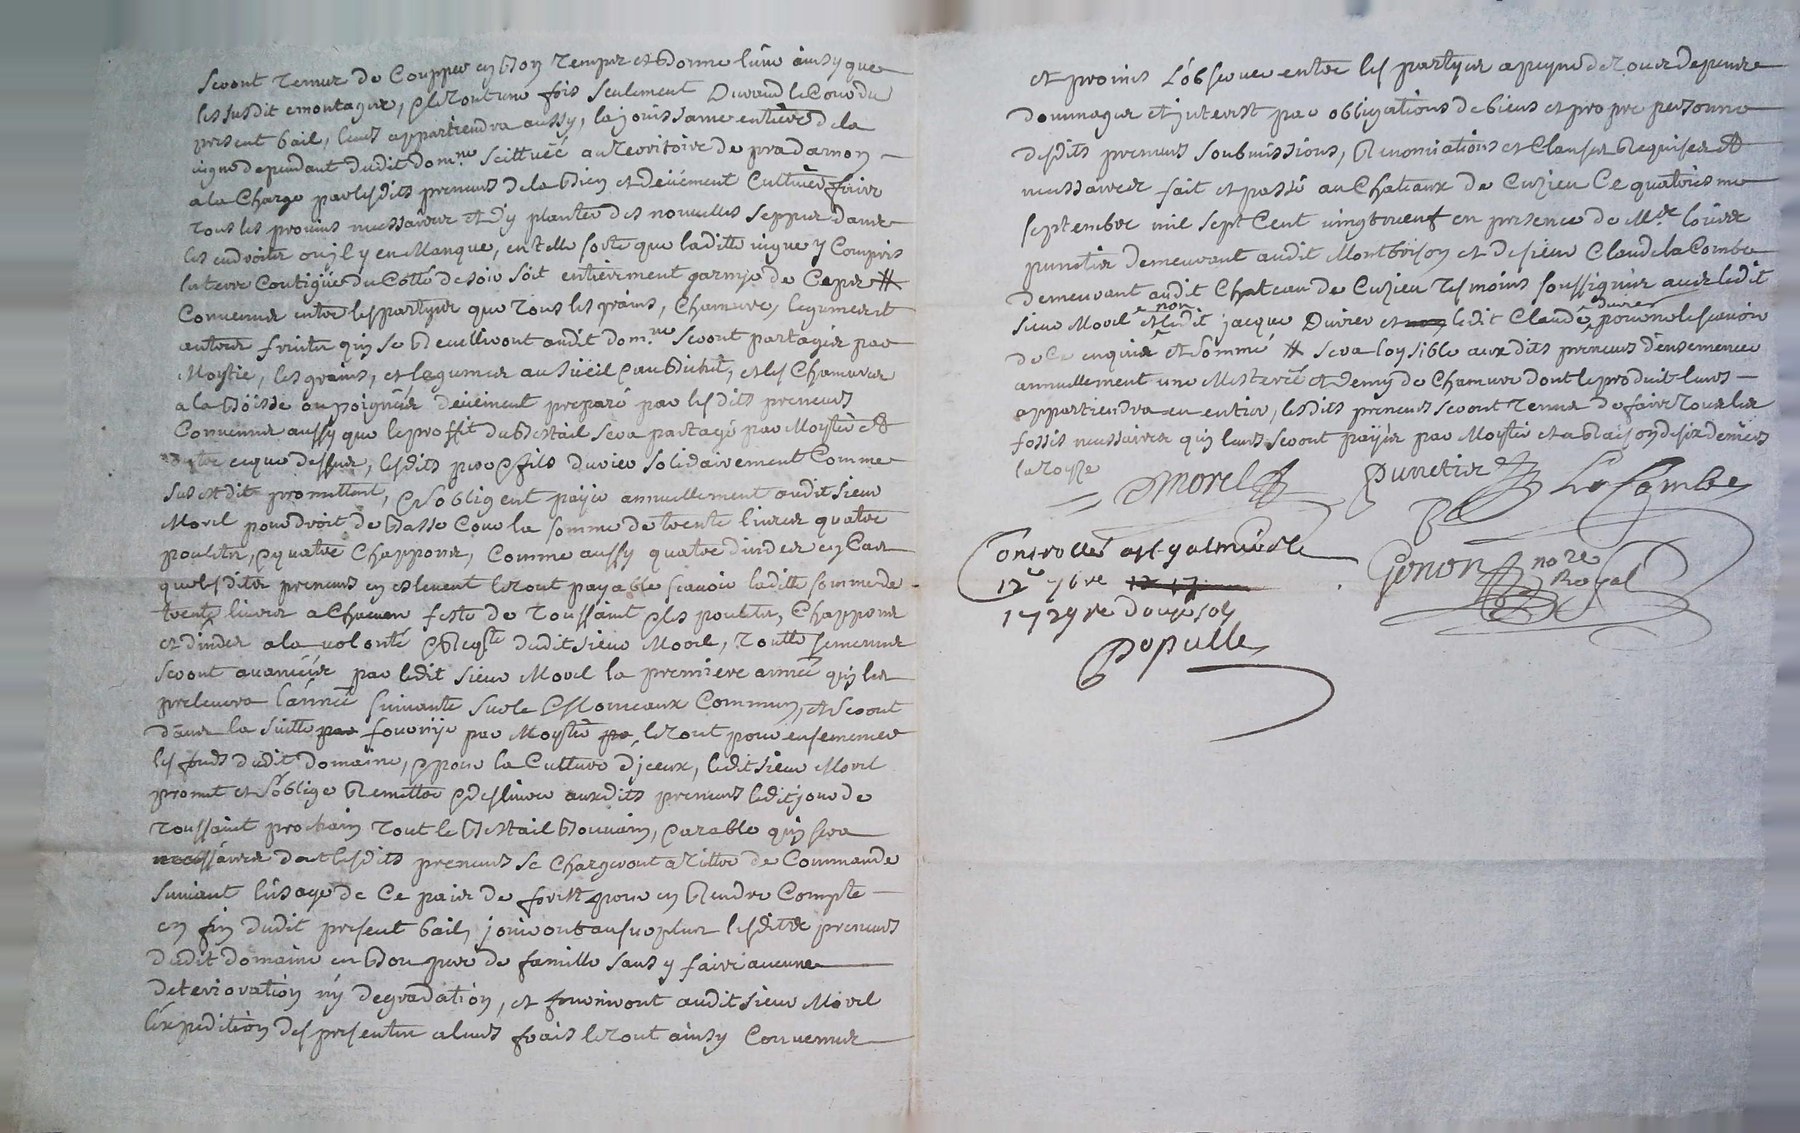 seront tenus de coupper en bon temps et bonne lune ainsy que
les susdit emontages, le tout une fois seulement durand le cour du
present bail, leurs appartiendra aussy, la jouissance entiere de la
vigne dependant dudit dom.ne scittuée au territoire de pradamon
a la charge par lesdits preneurs de la bien et deüement cultiver, faire
tous les provins necessaires et d'y planter des nouvelles seppes dans
les endroits ou il y en manque, en telle sorte que laditte vigne y compris
la terre contigüe du cotté de soir soit entierement garnye de ceps #
convenus entre les partyes que tous les grains, chanvre, legumes et
autres fruits qui se recuilliront audit dom.ne seront partagés par
moytie, les grains, et legumes au sueil, et les chanvres
a la ou poignés deüement preparé par lesdits preneurs
convenus aussy que le proffit du bestail sera partagé par moytié et
outre ce que dessus, lesdits pere et fils durier solidairement comme
susdit promettent, et s'obligent payer annuellement audit sieur
Morel pour droit de basse cour la somme de trente livres quatre
poulets, et quatre chappons, comme aussy quatre dindes en cas
que lesdits preneurs en eslevent le tout payable scavoir laditte somme de
trente livres a chacun feste de toussaint et les poulets, chappons
et dindes a la volonté et reqte dudit sieur Morel, toutte semences
seront avancées par ledit sieur Morel la premiere année qu'il les
prelevera l'année suivante sur le monceaux commun, et seront
dans la suitte par fournye par moytié pa le tout pour ensemencer
les fonds dudit domaine, et pour la culture d'jceux, ledit sieur Morel
promet et s'oblige remettre et deslivrer auxdits preneurs ledit jour de
toussaint prochain tout le bestail bouvain, et arable qui sera
necessaires dont lesdits preneurs se chargeront a tittre de commande
suivant l'usage de ce pais de forest pour en rendre compte
en fin dudit present bail, jouiront au surplus lesdits preneurs
dudit domaine en bon pere de famille sans y faire aucune
deterioration ny degradation, et fourniront audit sieur Morel
l'expedition des presentes a leurs frais le tout ainsy convenus
et promis l'observer entre les partyes a peyne de tous depens
dommages et interest par obligations de biens et propre personne
desdits preneurs soubmissions, renonciations et clauses requises et
necessaires fait et passé au chateaux de Cuzieu ce quatriesme
septembre mil sept cent vingt neuf en presence de Me louis
punctis demeurant audit Montbrison et de sieur Claude la Combe
demeurant audit chateau de Cuzieu tesmoins soussignés avec ledit
sieur Morel et non ledit jacque Durier et non ledit Claude durier pour ne le scavoir
de ce enquis et sommé # sera loysible aux dits preneurs d'ensemencer
annuellement une mesterée et demy de chanvre dont le produit leurs
appartiendra en entier, lesdits preneurs seront tenus de faire tous les
fossés necessaires qui leurs seront payés par moytié et a raison de six deniers
la toyse
Morel punctis La Combe
Genon nore Royal
Controllé a St galmier le
12e 7bre 12 17
1729 re douze sols
Populle